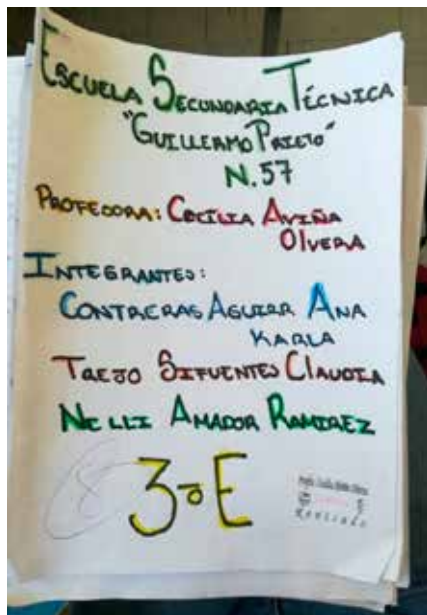 ESCUELA SECUNDARIA TÉCNICA
"GUILLERMO PRIETO"
N.57
PROFESORA: CECILIA AVIÑA
OLVERA
INTEGRANTES:
CONTRERAS AGUIRR ANA
KARLA
TREJO SIFUENTES CLAUDIA
NELLI AMADOR RAMIREZ
8
3ºE
Revisado